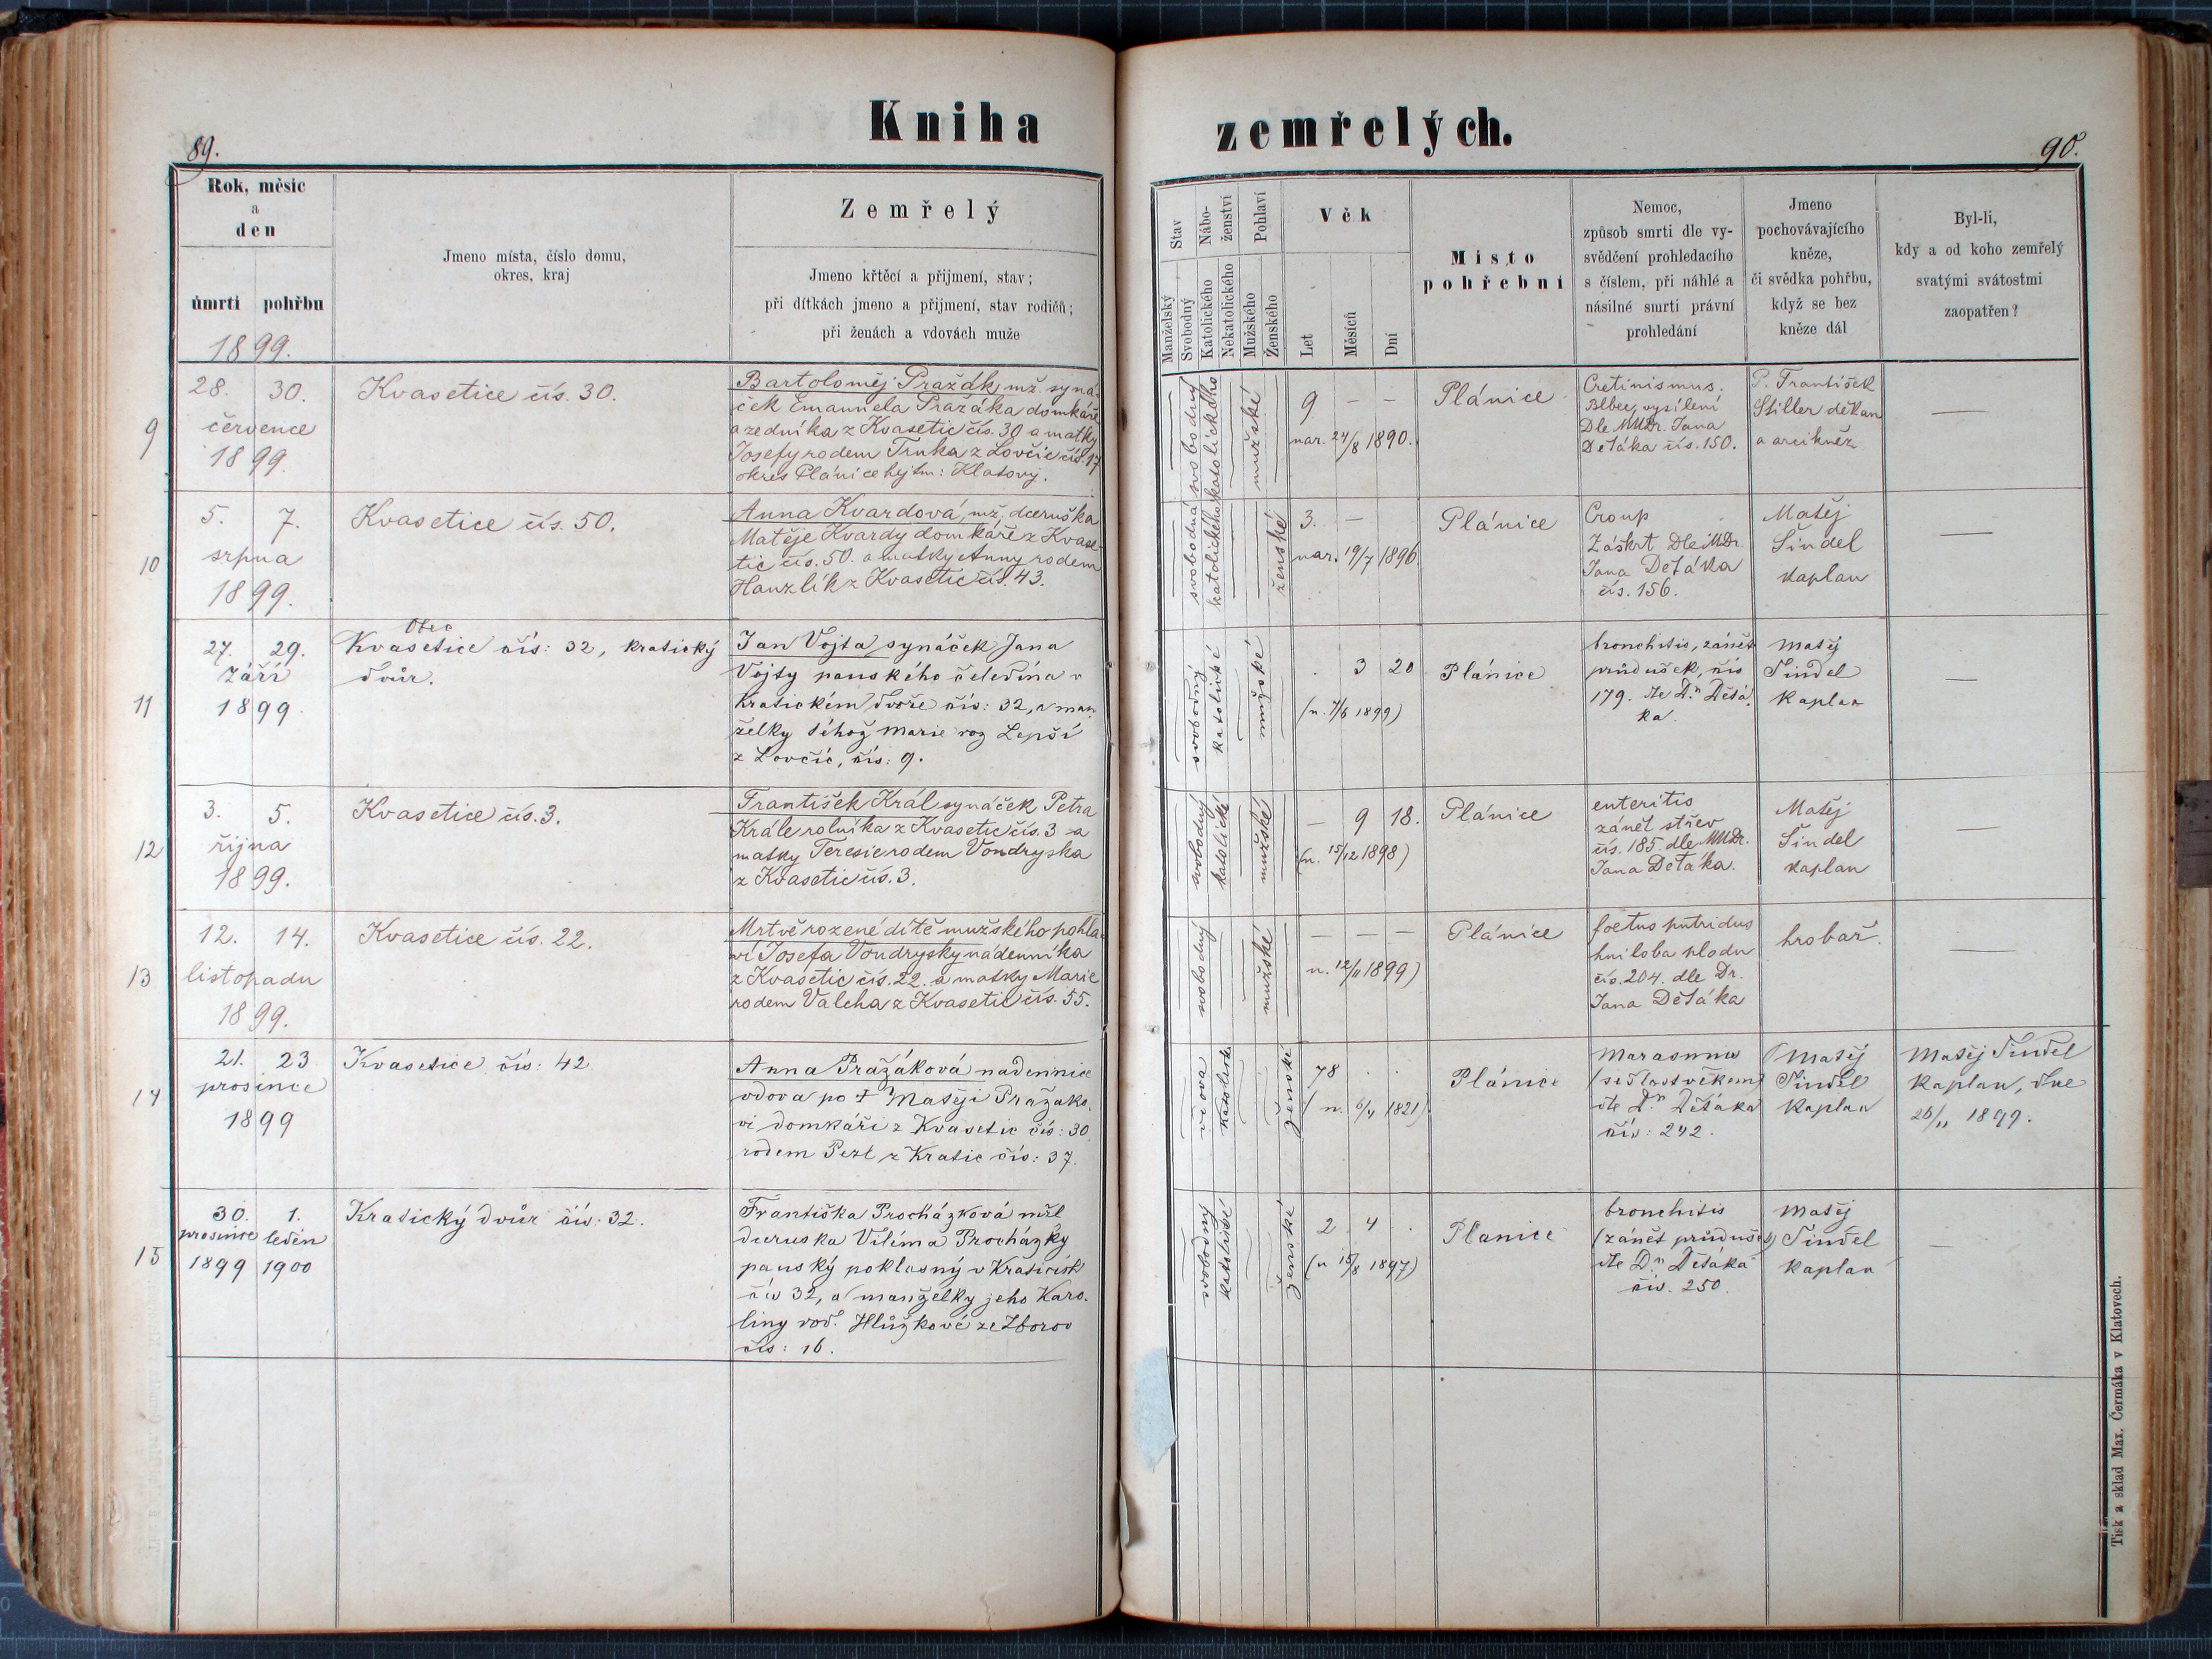 Kniha zemřelých.
89.
90.
Rok, měsíc
a
den
úmrtí pohřbu
1899.
Jmeno místa, číslo domu,
okres, kraj
Zemřelý
Jmeno křtěcí a přijmení, stav;
při dítkách jmeno a přijmení, stav rodičů;
při ženách a vdovách muže
Stav
Manželský
Svobodný
Nábo-
ženství
Katolického
Nekatolického
Pohlaví
Mužského
Ženského
Věk
Let
Měsíců
Dní
Místo
pohřební
Nemoc,
způsob smrti dle vy-
svědčení prohledacího
s číslem, při náhlé a
násilné smrti právní
prohledání
Jmeno
pochovávajícího
kněze,
či svědka pohřbu,
když se bez
kněze dál
Byl-li,
kdy a od koho zemřelý
svatými svátostmi
zaopatřen?
9
28. 30.
července
1899.
Kvasetice čís. 30.
Bartoloměj Pražák, mž. syná-
ček Emanuela Pražáka domkáře
a zedníka z Kvasetic čís. 30 a matky
Josefy rodem Trnka z Lovčic čís. 17
okres Plánice hejtm: Klatovy.
svobodný
katolického
mužské
9 — —
nar. 24/8 1890.
Plánice
Cretinismus.
Blbec, vysílení
Dle MUDr. Jana
Deťáka čís. 150.
P. František
Stiller děkan
a arcikněz
—
10
5. 7.
srpna
1899.
Kvasetice čís. 50.
Anna Kvardová, mž. dceruška
Matěje Kvardy domkáře z Kvase-
tic čís. 50. a matky Anny rodem
Hanzlík z Kvasetic čís. 43.
svobodná
katolického
ženské
3. —
nar. 19/7 1896.
Plánice
Croup
Záškrt Dle MUDr.
Jana Deťáka
čís. 156.
Matěj
Šindel
kaplan
—
11
27. 29.
září
1899
Obec
Kvasetice čís: 32, kratický
dvůr.
Jan Vojta synáček Jana
Vojty panského čeledína v
kratickém dvoře čís: 32, a man
želky téhož Marie roz Lepší
z Lovčic, čís: 9.
svobodný
katolické
mužské
. 3 20
(n. 7/6 1899)
Plánice
bronchitis, zánět
průdušek, čís
179. dle Dra Dětá
ka.
Matěj
Šindel
kaplan
—
12
3. 5.
října
1899.
Kvasetice čís. 3.
František Král synáček Petra
Krále rolníka z Kvasetic čís. 3 a
matky Teresie rodem Vondryska
z Kvasetic čís. 3.
svobodný
katolické
mužské
— 9 18.
(n. 15/12 1898)
Plánice
enteritis
zánět střev
čís. 185. dle MUDr.
Jana Deťáka.
Matěj
Šindel
kaplan
—
13
12. 14.
listopadu
1899.
Kvasetice čís. 22.
Mrtvě rozené dítě mužského pohla-
ví Josefa Vondrysky nádenníka
z Kvasetic čís. 22. a matky Marie
rodem Valcha z Kvasetic čís. 55.
svobodný
mužské
— — —
n. 12/11 1899)
Plánice
foetus putridus
hniloba plodu
čís. 204. dle Dr.
Jana Děťáka
hrobař.
—
14
21. 23
prosince
1899
Kvasetice čís: 42
Anna Pražáková nádennice
vdova po † Matěji Pražáko-
vi domkáři z Kvasetic čís: 30
rodem Pezl z Kratic čís: 37.
vdova
katolické
ženské
78 . .
(n. 6/4 1821)
Plánice
Marasmus
(sešlost věkem)
dle Dra Děťáka
čís: 242.
Matěj
Šindel
kaplan
Matěj Šindel
kaplan, dne
26/11 1899.
15
30. 1.
prosince leden
1899 1900
Kratický dvůr čís: 32.
Františka Procházková mžl
dceruska Viléma Procházky
panský poklasný v Kraticích
čís 32, a manželky jeho Karo-
liny rod. Hlůžkové ze Zborov
čís: 16.
svobodný
katolické
ženské
2 4 .
(n 15/8 1897)
Plánice
bronchitis
(zánět průdušek)
dle Dra Děťáka
čís. 250.
Matěj
Šindel
kaplan
—
Tisk a sklad Max. Čermáka v Klatovech.